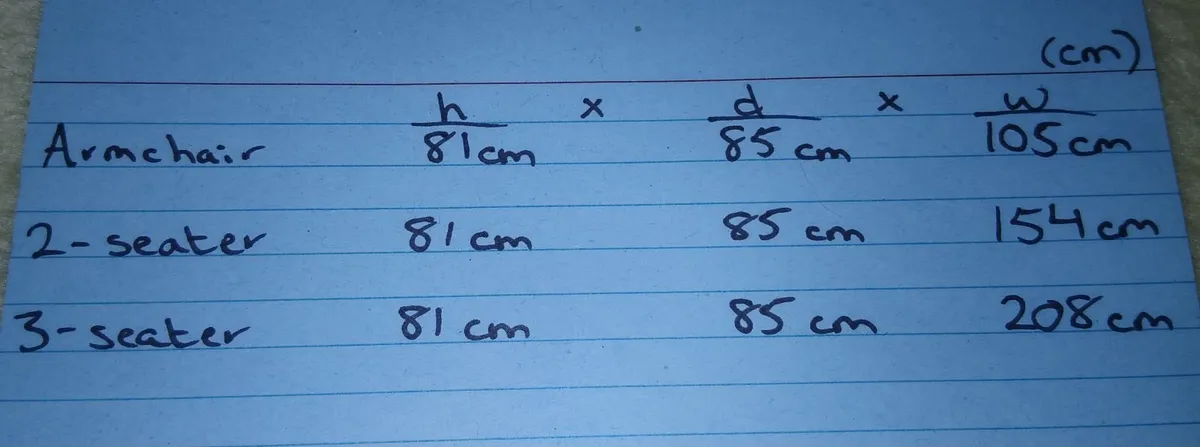 (cm)
h x d x w
Armchair 81cm 85 cm 105cm
2-seater 81 cm 85 cm 154cm
3-seater 81 cm 85 cm 208cm